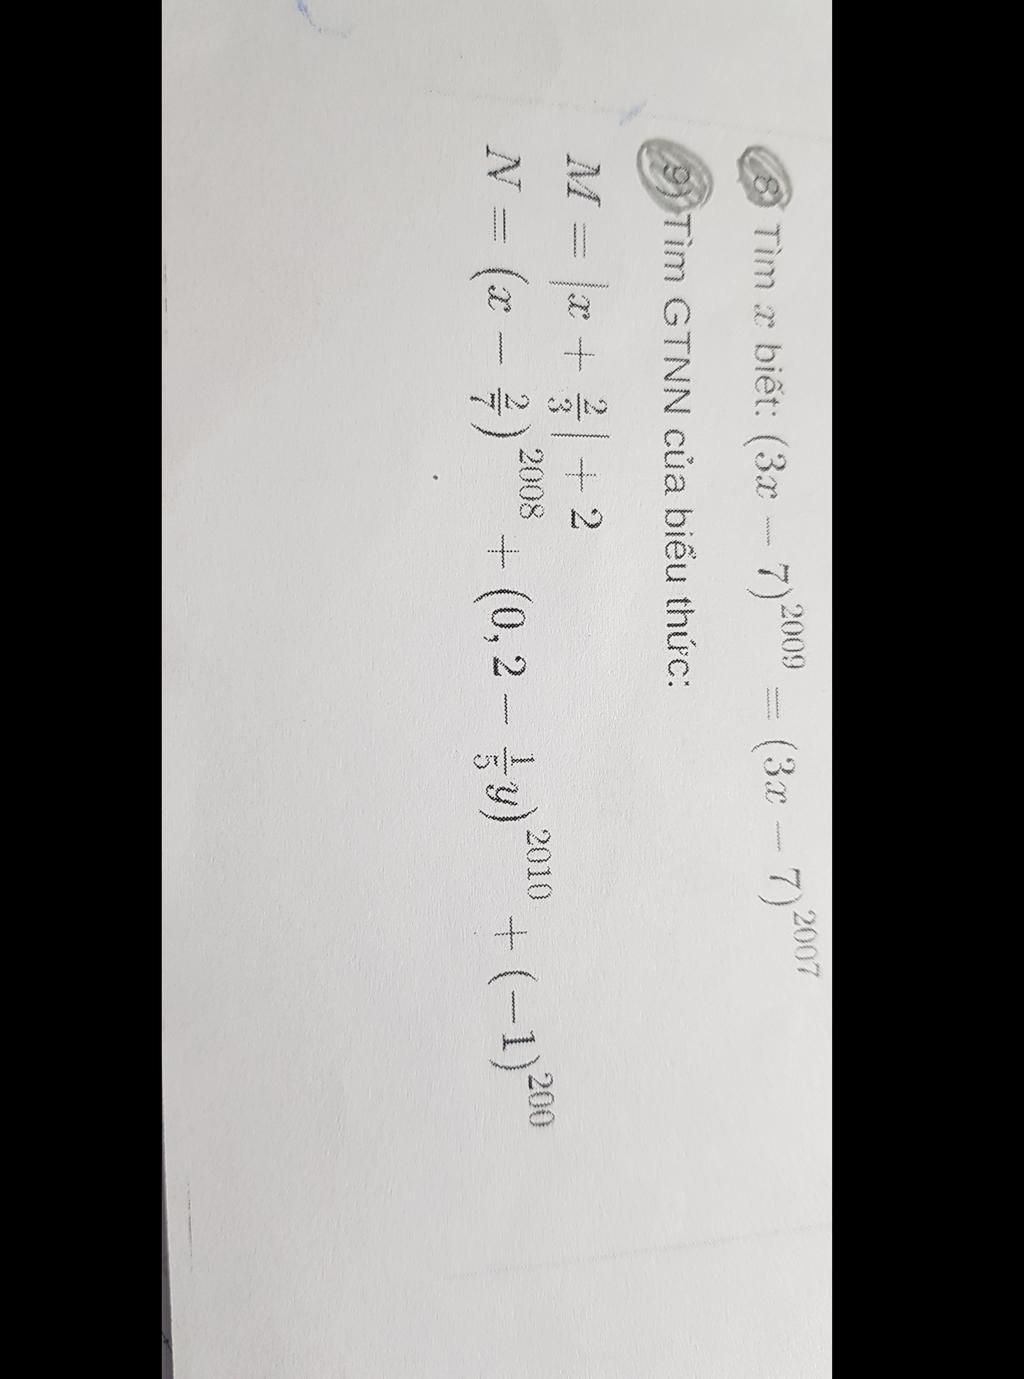 8) Tìm x biết: (3x − 7)^2009 = (3x − 7)^2007
9) Tìm GTNN của biểu thức:
M = |x + 2/3| + 2
N = (x − 2/7)^2008 + (0,2 − 1/5 y)^2010 + (−1)^200